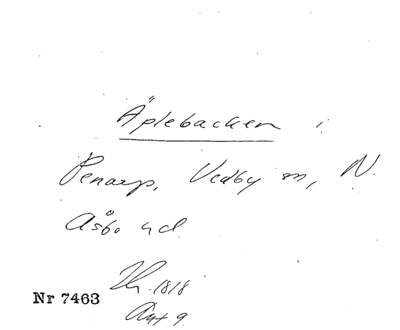 Äplebacken i
Penarp, Vedby sn, N.
Åsbo hd
Lr. 1818
Akt 9
Nr 7463